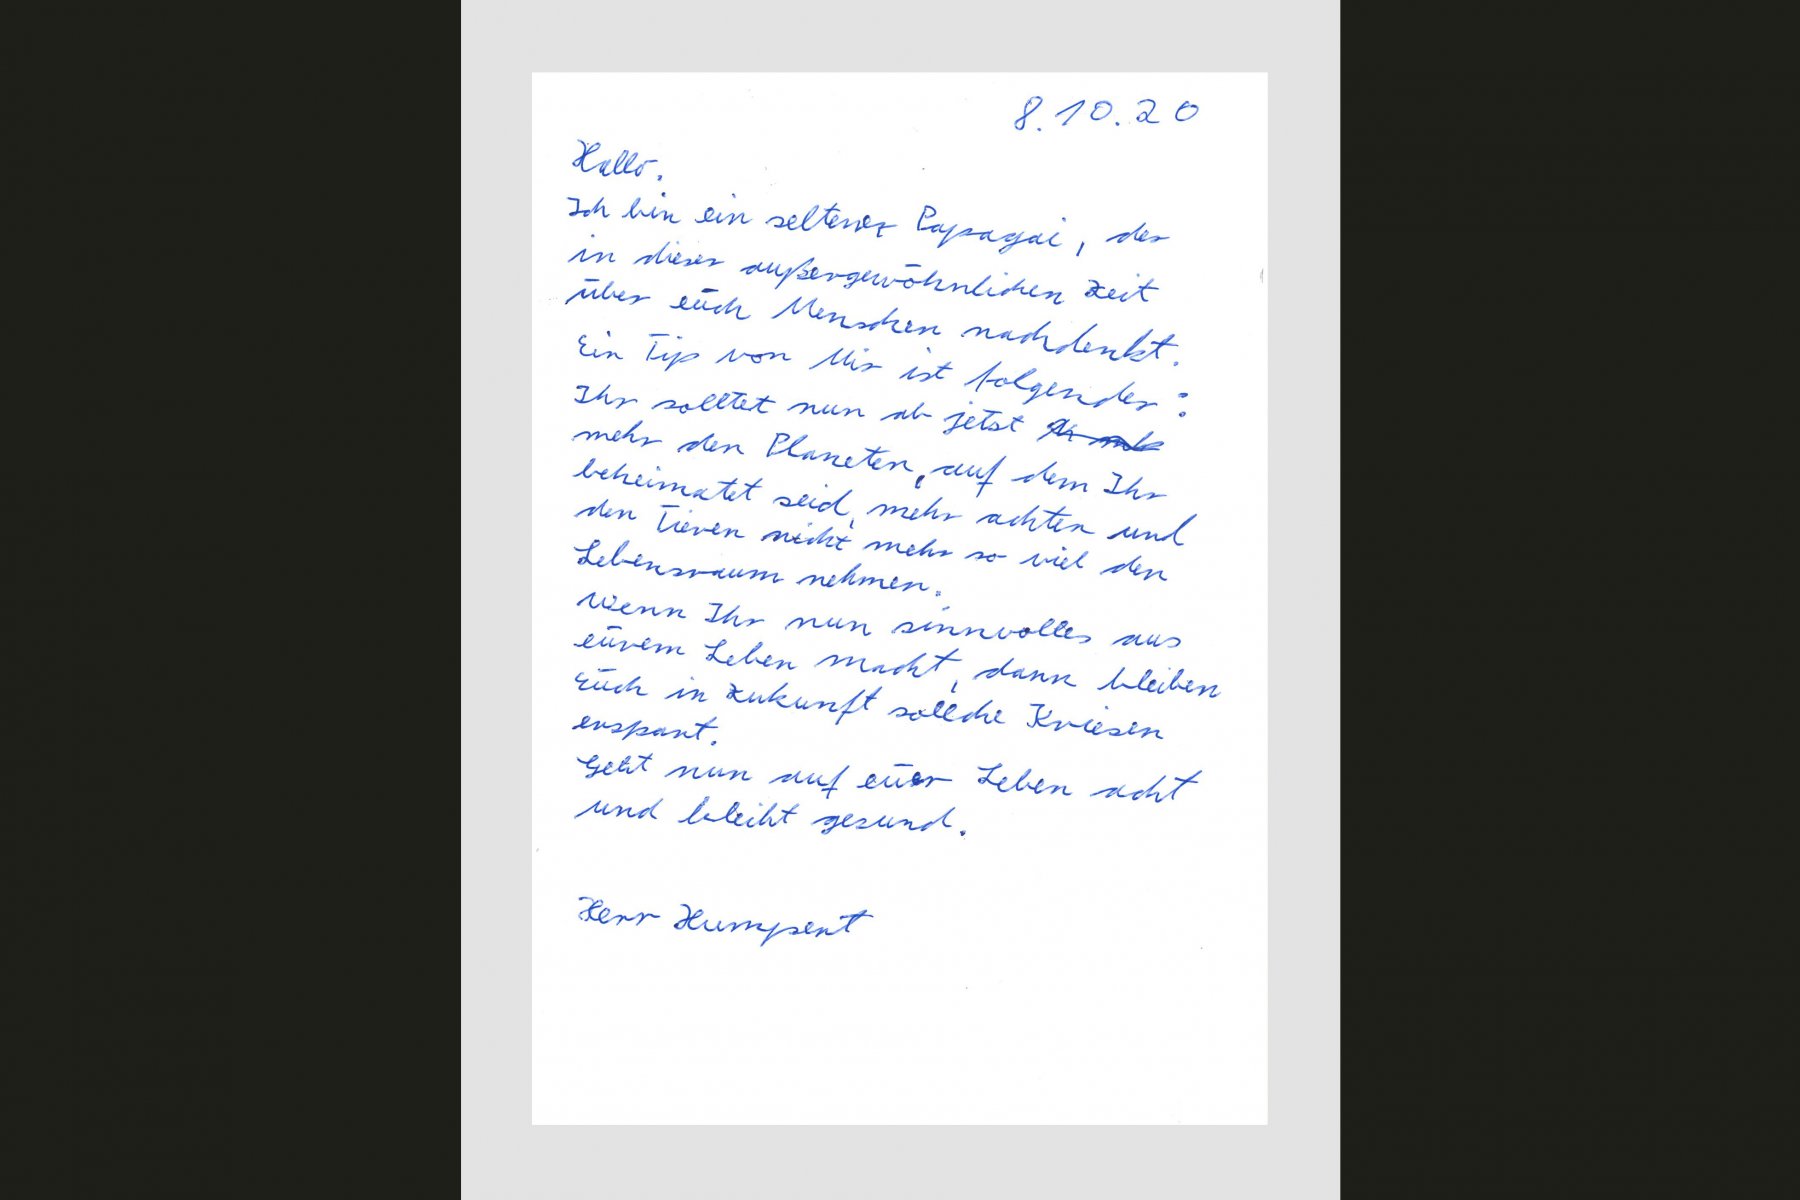 8.10.20
Hallo.
Ich bin ein seltener Papagai, der
in dieser außergewöhnlichen Zeit
über euch Menschen nachdenkt.
Ein Tip von Mir ist folgender:
Ihr solltet nun ab jetzt
mehr den Planeten, auf dem Ihr
beheimatet seid, mehr achten und
den Tieren nicht mehr so viel den
Lebensraum nehmen.
Wenn Ihr nun sinnvolles aus
eurem Leben macht, dann bleiben
Euch in Zukunft sollche Kriesen
erspart.
Gebt nun auf euer Leben acht
und bleibt gesund.
Herr Humpert